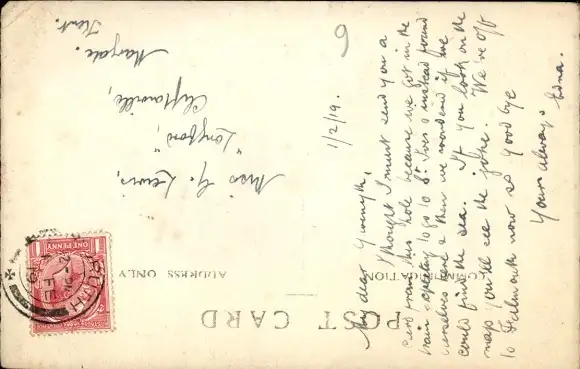 POST CARD
COMMUNICATION
ADDRESS ONLY
1/2/19.
My dear Gwenyth,
I thought I must send you a
card from this hole because we got in the
train expecting to go to St. Ives & instead found
ourselves here & then we wondered if we
could find the sea. If you look on the
map you'll see the joke. We're off
to Falmouth now so good bye
Yours always
Edna.
Miss G. Lewis,
"Longford",
Cliftonville,
Margate.
Kent.
6
ONE PENNY
1
1
RUTH
FE
19